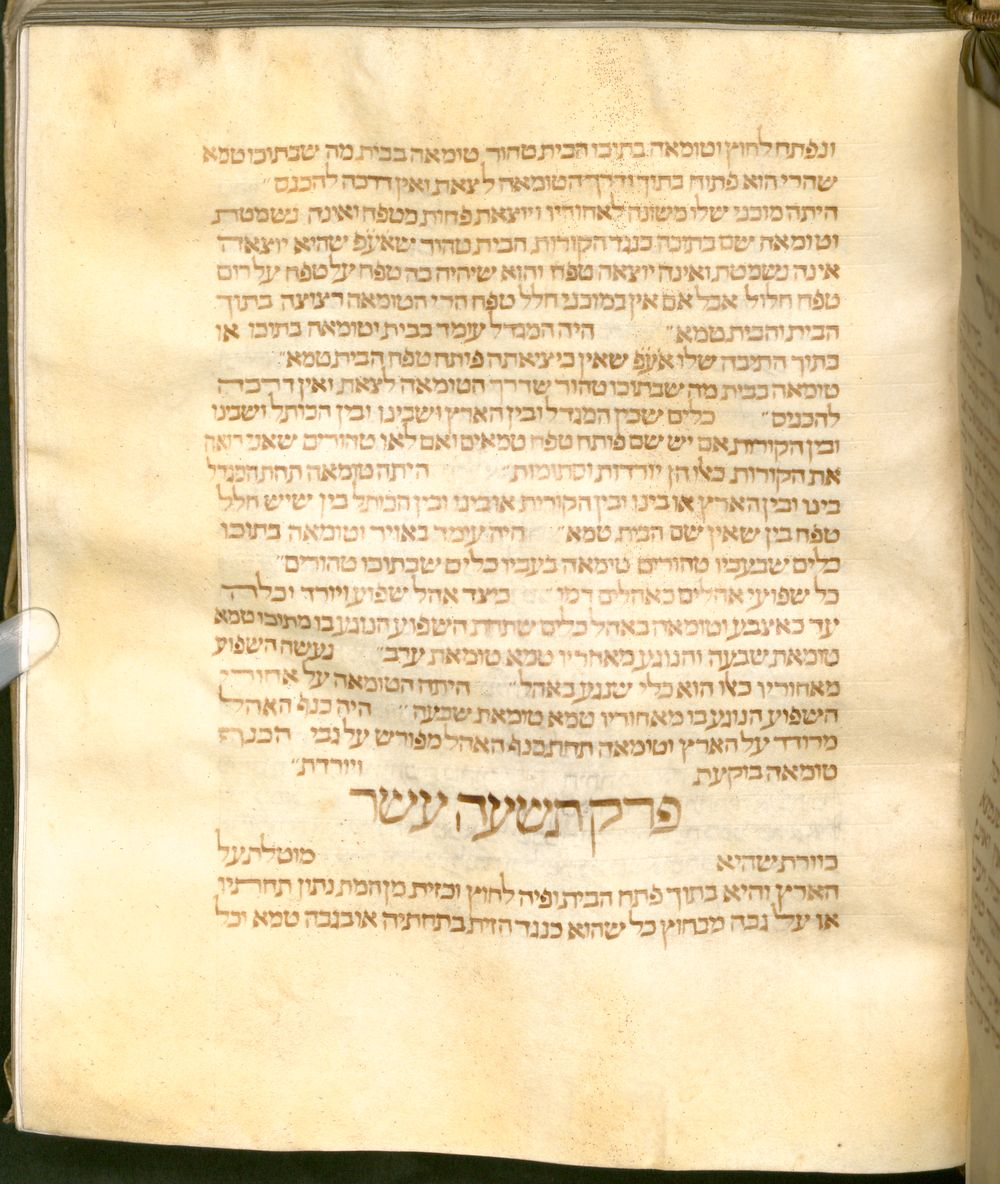 ונפתח לחוץ וטומאה בתוכו הבית טהור טומאה בבית מה שבתוכו טמא
שהרי הוא פתוח בתוך ודרך הטומאה לצאת ואין דרכה להכנס״
היתה מוכני שלו משוכה לאחוריו ויוצאת פחות מטפח ואינה נשמטת
וטומאה שם בתוכה כנגד הקורות הבית טהור שאעפ שהיא יוצאה
אינה נשמטת ואינה יוצאה טפח והוא שיהיה בה טפח על טפח על רום
טפח חלול אבל אם אין במוכני חלל טפח הרי הטומאה רצוצה בתוך
הבית והבית טמא״ היה המגדל עומד בבית וטומאה בתוכו או
בתוך התיבה שלו אעפ שאין ביציאתה פותח טפח הבית טמא״
טומאה בבית מה שבתוכו טהור שדרך הטומאה לצאת ואין דרכה
להכניס״ כלים שבין המגדל ובין הארץ ושבינו ובין הכותל ושבינו
ובין הקורות אם יש שם פותח טפח טמאים ואם לאו טהורים שאני רואה
את הקורות כאלו הן יורדות וסתומות״ היתה טומאה תחת המגדל
בינו ובין הארץ או בינו ובין הקורות או בינו ובין הכותל בין שיש חלל
טפח בין שאין שם הבית טמא״ היה עומד באויר וטומאה בתוכו
כלים שבעביו טהורים טומאה בעביו כלים שבתוכו טהורים״
כל שפועי אהלים כאהלים דמו כיצד אהל שפוע ויורד וכלה
עד כאצבע וטומאה באהל כלים שתחת השפוע הנוגע בו מתוכו טמא
טומאת שבעה והנוגע מאחריו טמא טומאת ערב״ נעשה השפוע
מאחוריו כאלו הוא כלי שנגע באהל״ היתה הטומאה על אחורי
השפוע הנוגע בו מאחוריו טמא טומאת שבעה״ היה כנף האהל
מרודד על הארץ וטומאה תחת כנף האהל מפורש על גבי הכנף
טומאה בוקעת ויורדת״
פרק תשעה עשר
כוורת שהיא מוטלת על
הארץ והיא בתוך פתח הבית ופיה לחוץ וכזית מן המת נתון תחתיו
או על גבה מבחוץ כל שהוא כנגד הזית בתחתיה או בגבה טמא וכל